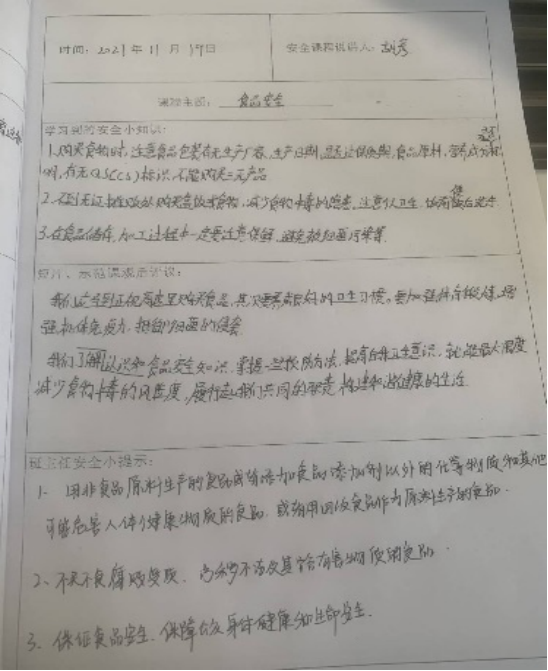 时间：2021年11月19日 安全课程讲解人：
课程主题：食品安全
学习到的安全小知识：
1.购买食物时，注意食品包装有无生产厂家、生产日期，是否过保质期，食品原料，营养成分标
明，有无QS(CS)标识，不能购买三无产品
2.不到无证摊贩处购买食物，减少食物中毒的隐患，注意个人卫生，饭前便后洗手
3.在食品储存、加工过程中一定要注意保鲜，避免被细菌污染等.
我们应当到正规商店里购买食品，其次要养成良好的卫生习惯。要加强体育锻炼，增
强机体免疫力，抵御细菌的侵害
我们了解认识和食品安全知识，掌握一些预防方法，提高自我卫生意识，就能最大限度
减少食物中毒的风险度，履行起我们共同的职责，构建和谐健康的生活.
班主任安全小提示：
1. 用非食品原料生产的食品或者添加食品添加剂以外的化学物质和其他
可能危害人体健康物质的食品，或者用回收食品作为原料生产的食品.
2、不买不食腐败变质、污秽不洁及其它含有害物质的食品.
3. 保证食品安全，保障公众身体健康和生命安全.